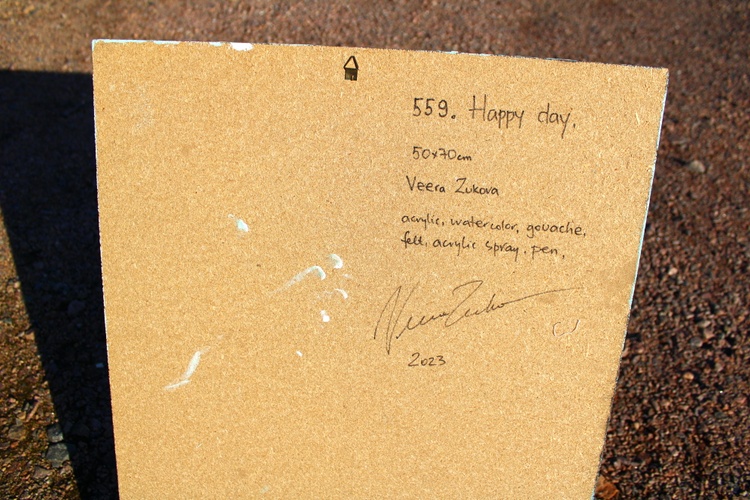 559. Happy day,
50x70cm
Veera Zukova
acrylic, watercolor, gouache,
felt, acrylic spray, pen,
Veera Zuko
2023